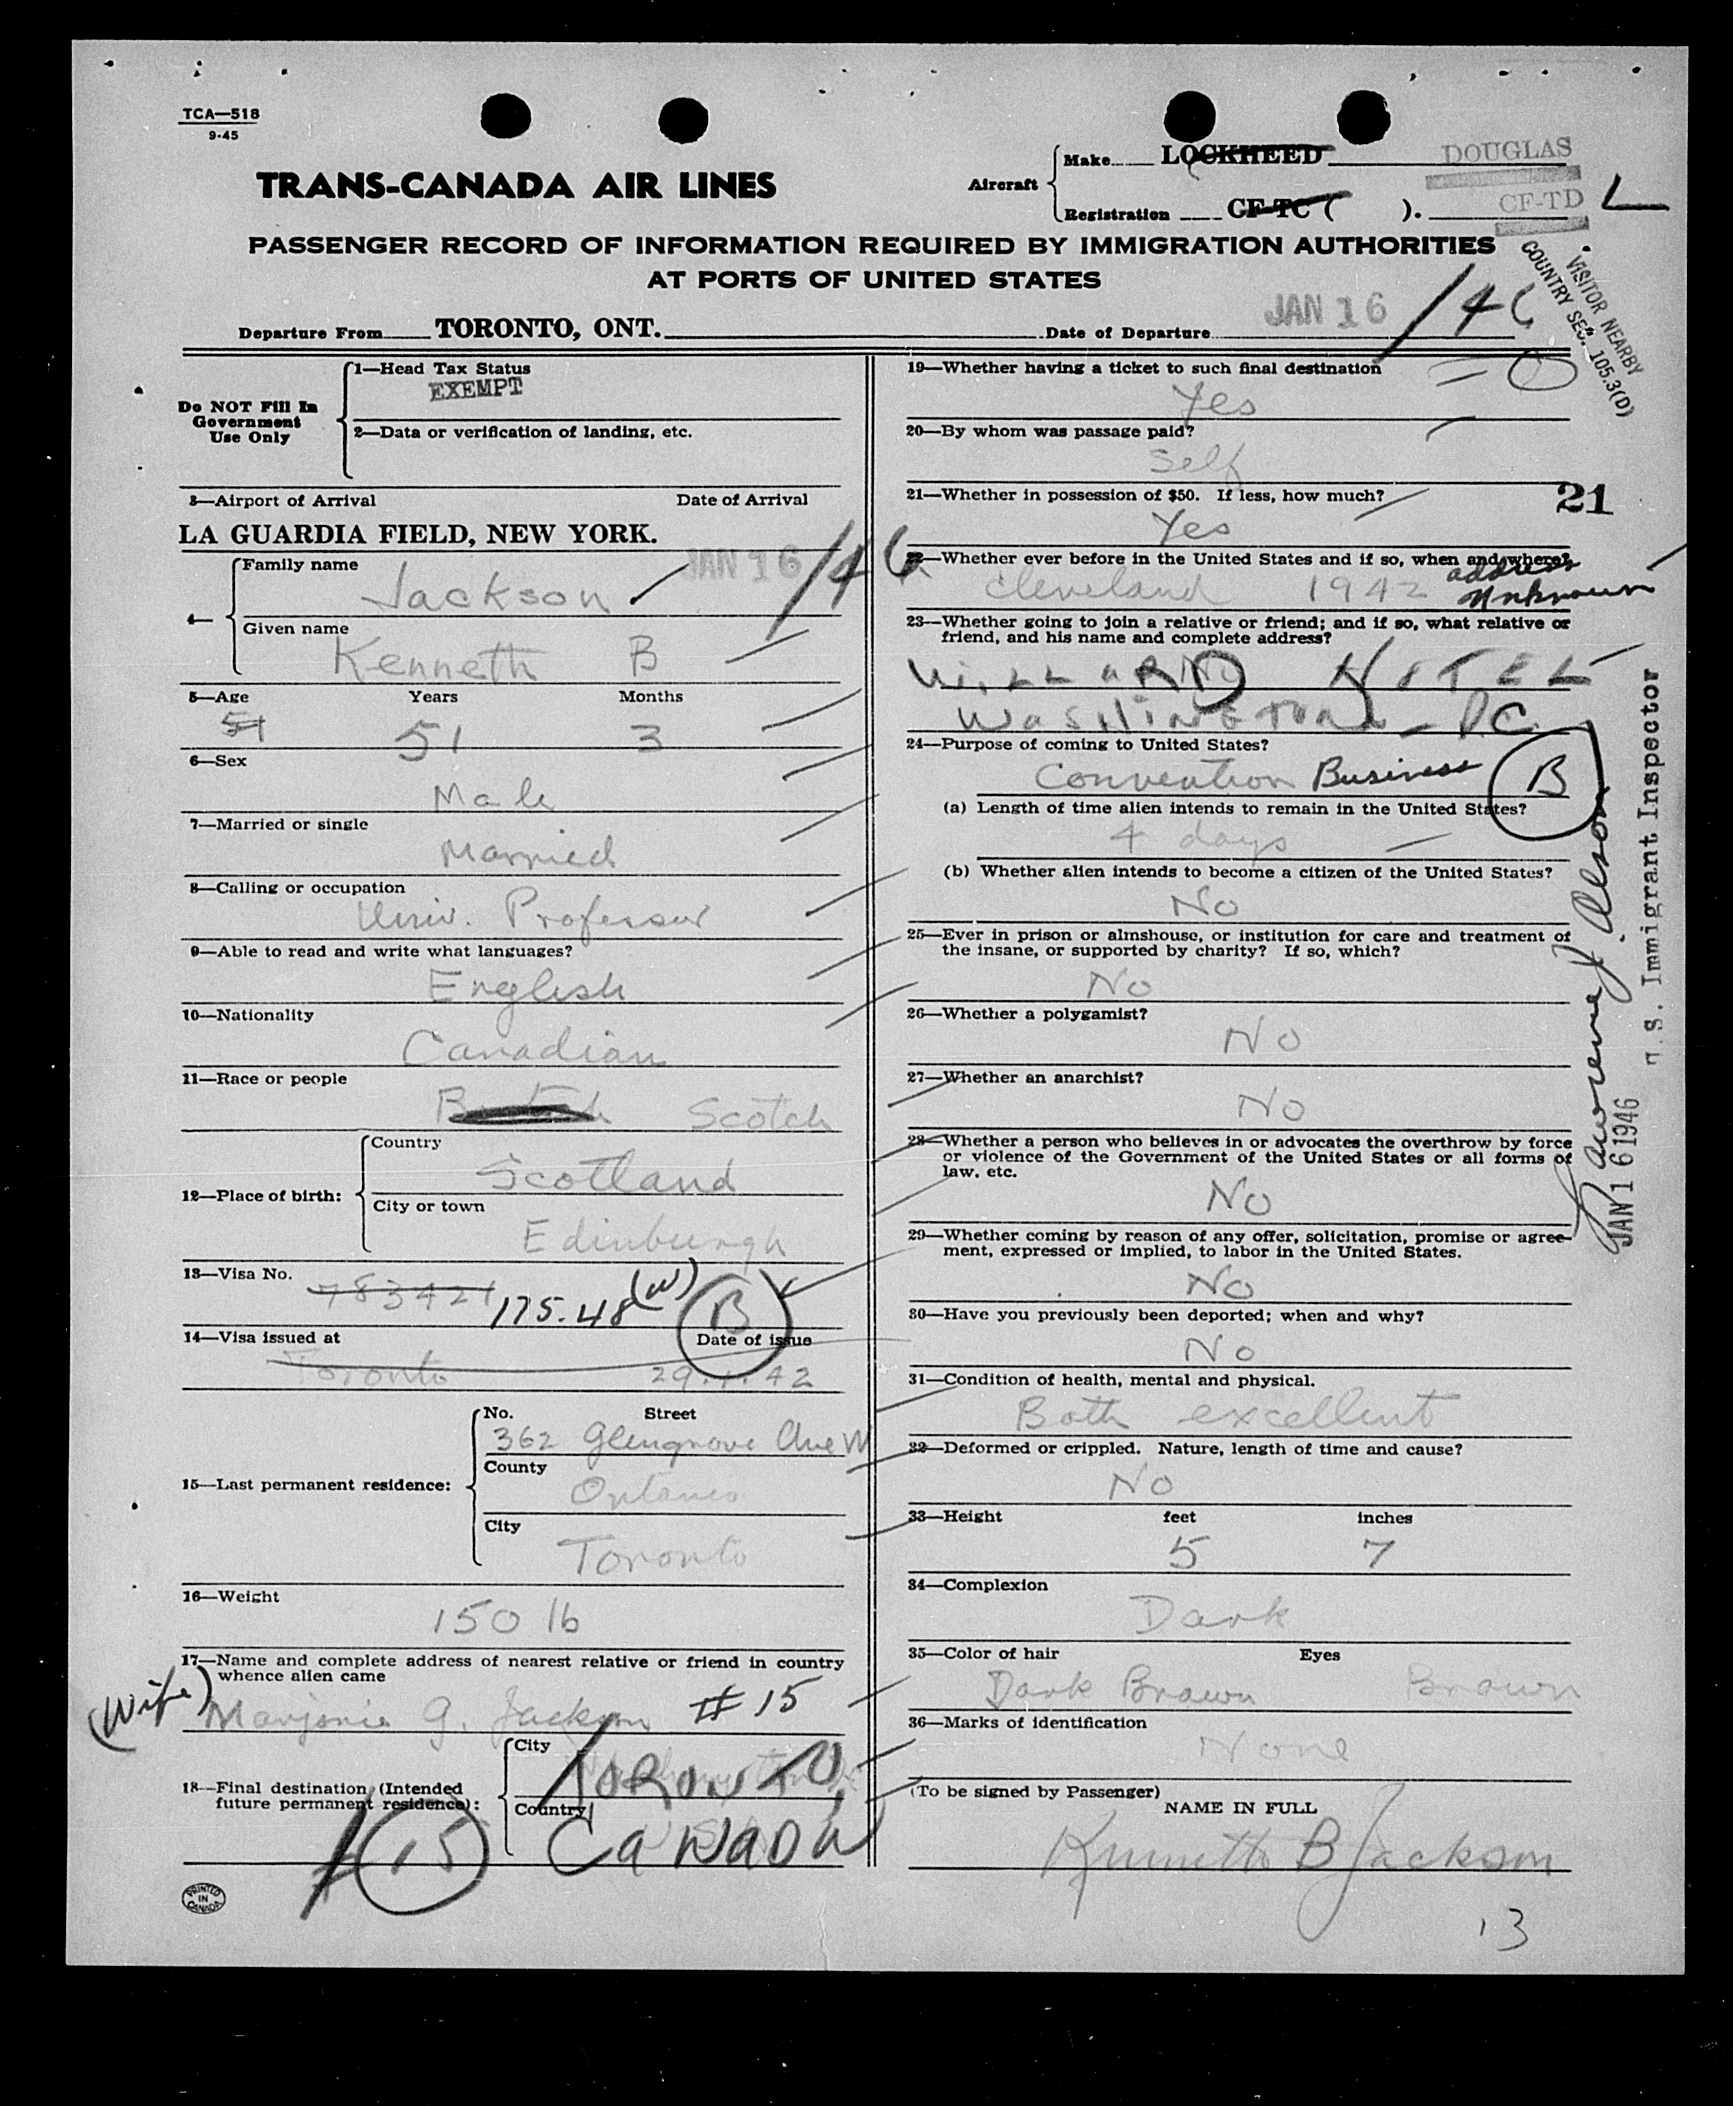 TCA—518
9-45
TRANS-CANADA AIR LINES
Aircraft
Make LOCKHEED DOUGLAS
Registration CF-TC ( ). CF-TD L
PASSENGER RECORD OF INFORMATION REQUIRED BY IMMIGRATION AUTHORITIES
AT PORTS OF UNITED STATES
VISITOR NEARBY
COUNTRY SEC. 105.3(D)
Departure From TORONTO, ONT. Date of Departure JAN 16 /46
Do NOT Fill In
Government
Use Only
1—Head Tax Status
EXEMPT
2—Data or verification of landing, etc.
3—Airport of Arrival Date of Arrival
LA GUARDIA FIELD, NEW YORK.
JAN 16 /46
4—
Family name
Jackson
Given name
Kenneth B
5—Age Years Months
51 51 3
6—Sex
Male
7—Married or single
Married
8—Calling or occupation
Univ. Professor
9—Able to read and write what languages?
English
10—Nationality
Canadian
11—Race or people
Scotch
12—Place of birth:
Country
Scotland
City or town
Edinburgh
13—Visa No.
783421 175.48 (w) B
14—Visa issued at Date of issue
Toronto 29.1.42
15—Last permanent residence:
No. Street
362 Glengrove Ave W
County
Ontario
City
Toronto
16—Weight
150 lb
17—Name and complete address of nearest relative or friend in country
whence alien came
(Wife) Marjorie G. Jackson #15
18—Final destination (Intended
future permanent residence):
City
TORONTO
Country
CANADA
#15
PRINTED
IN
CANADA
19—Whether having a ticket to such final destination
Yes
20—By whom was passage paid?
Self
21—Whether in possession of $50. If less, how much?
Yes
21
22—Whether ever before in the United States and if so, when and where?
Cleveland 1942 address unknown
23—Whether going to join a relative or friend; and if so, what relative or
friend, and his name and complete address?
WILLARD HOTEL
WASHINGTON - DC
24—Purpose of coming to United States?
Convention Business B
(a) Length of time alien intends to remain in the United States?
4 days
(b) Whether alien intends to become a citizen of the United States?
No
25—Ever in prison or almshouse, or institution for care and treatment of
the insane, or supported by charity? If so, which?
No
26—Whether a polygamist?
No
27—Whether an anarchist?
No
28—Whether a person who believes in or advocates the overthrow by force
or violence of the Government of the United States or all forms of
law, etc.
No
29—Whether coming by reason of any offer, solicitation, promise or agree-
ment, expressed or implied, to labor in the United States.
No
30—Have you previously been deported; when and why?
No
31—Condition of health, mental and physical.
Both excellent
32—Deformed or crippled. Nature, length of time and cause?
No
33—Height feet inches
5 7
34—Complexion
Dark
35—Color of hair Eyes
Dark Brown Brown
36—Marks of identification
None
(To be signed by Passenger)
NAME IN FULL
Kenneth B Jackson
13
JAN 16 1946
U.S. Immigrant Inspector